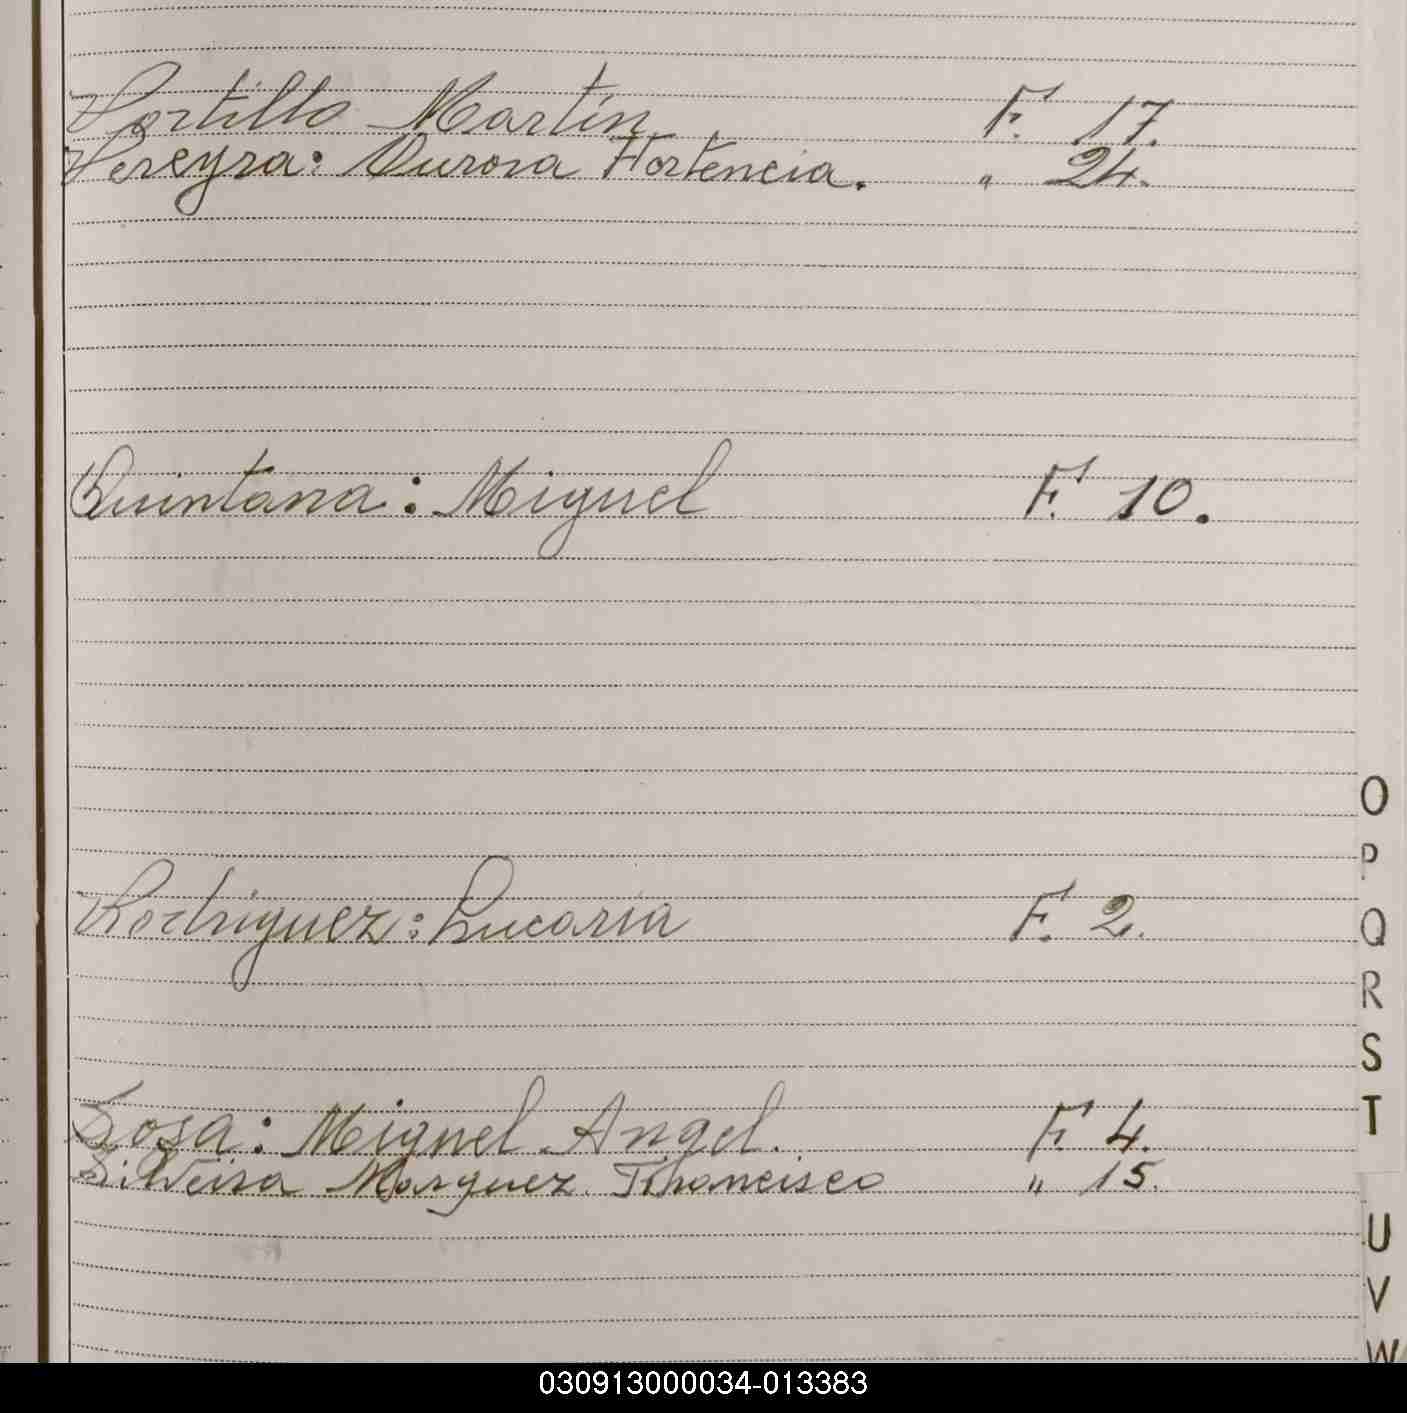 Portillo Martín F. 17.
Pereyra: Aurora Hortencia. " 24.
Quintana: Miguel F. 10.
Rodriguez: Lucaria F. 2.
Sosa: Miguel Angel. F. 4.
Silveira Marquez Francisco " 15.
O
P
Q
R
S
T
U
V
W
030913000034-013383